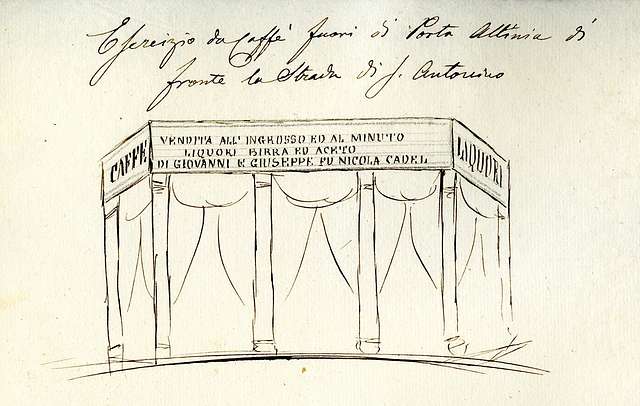 Esercizio da Caffè fuori di Porta Altinia di
fronte la Strada di S. Antonino
CAFFE
VENDITA ALL' INGROSSO ED AL MINUTO
LIQUORI BIRRA ED ACETO
DI GIOVANNI E GIUSEPPE FU NICOLA CADEL
LIQUORI